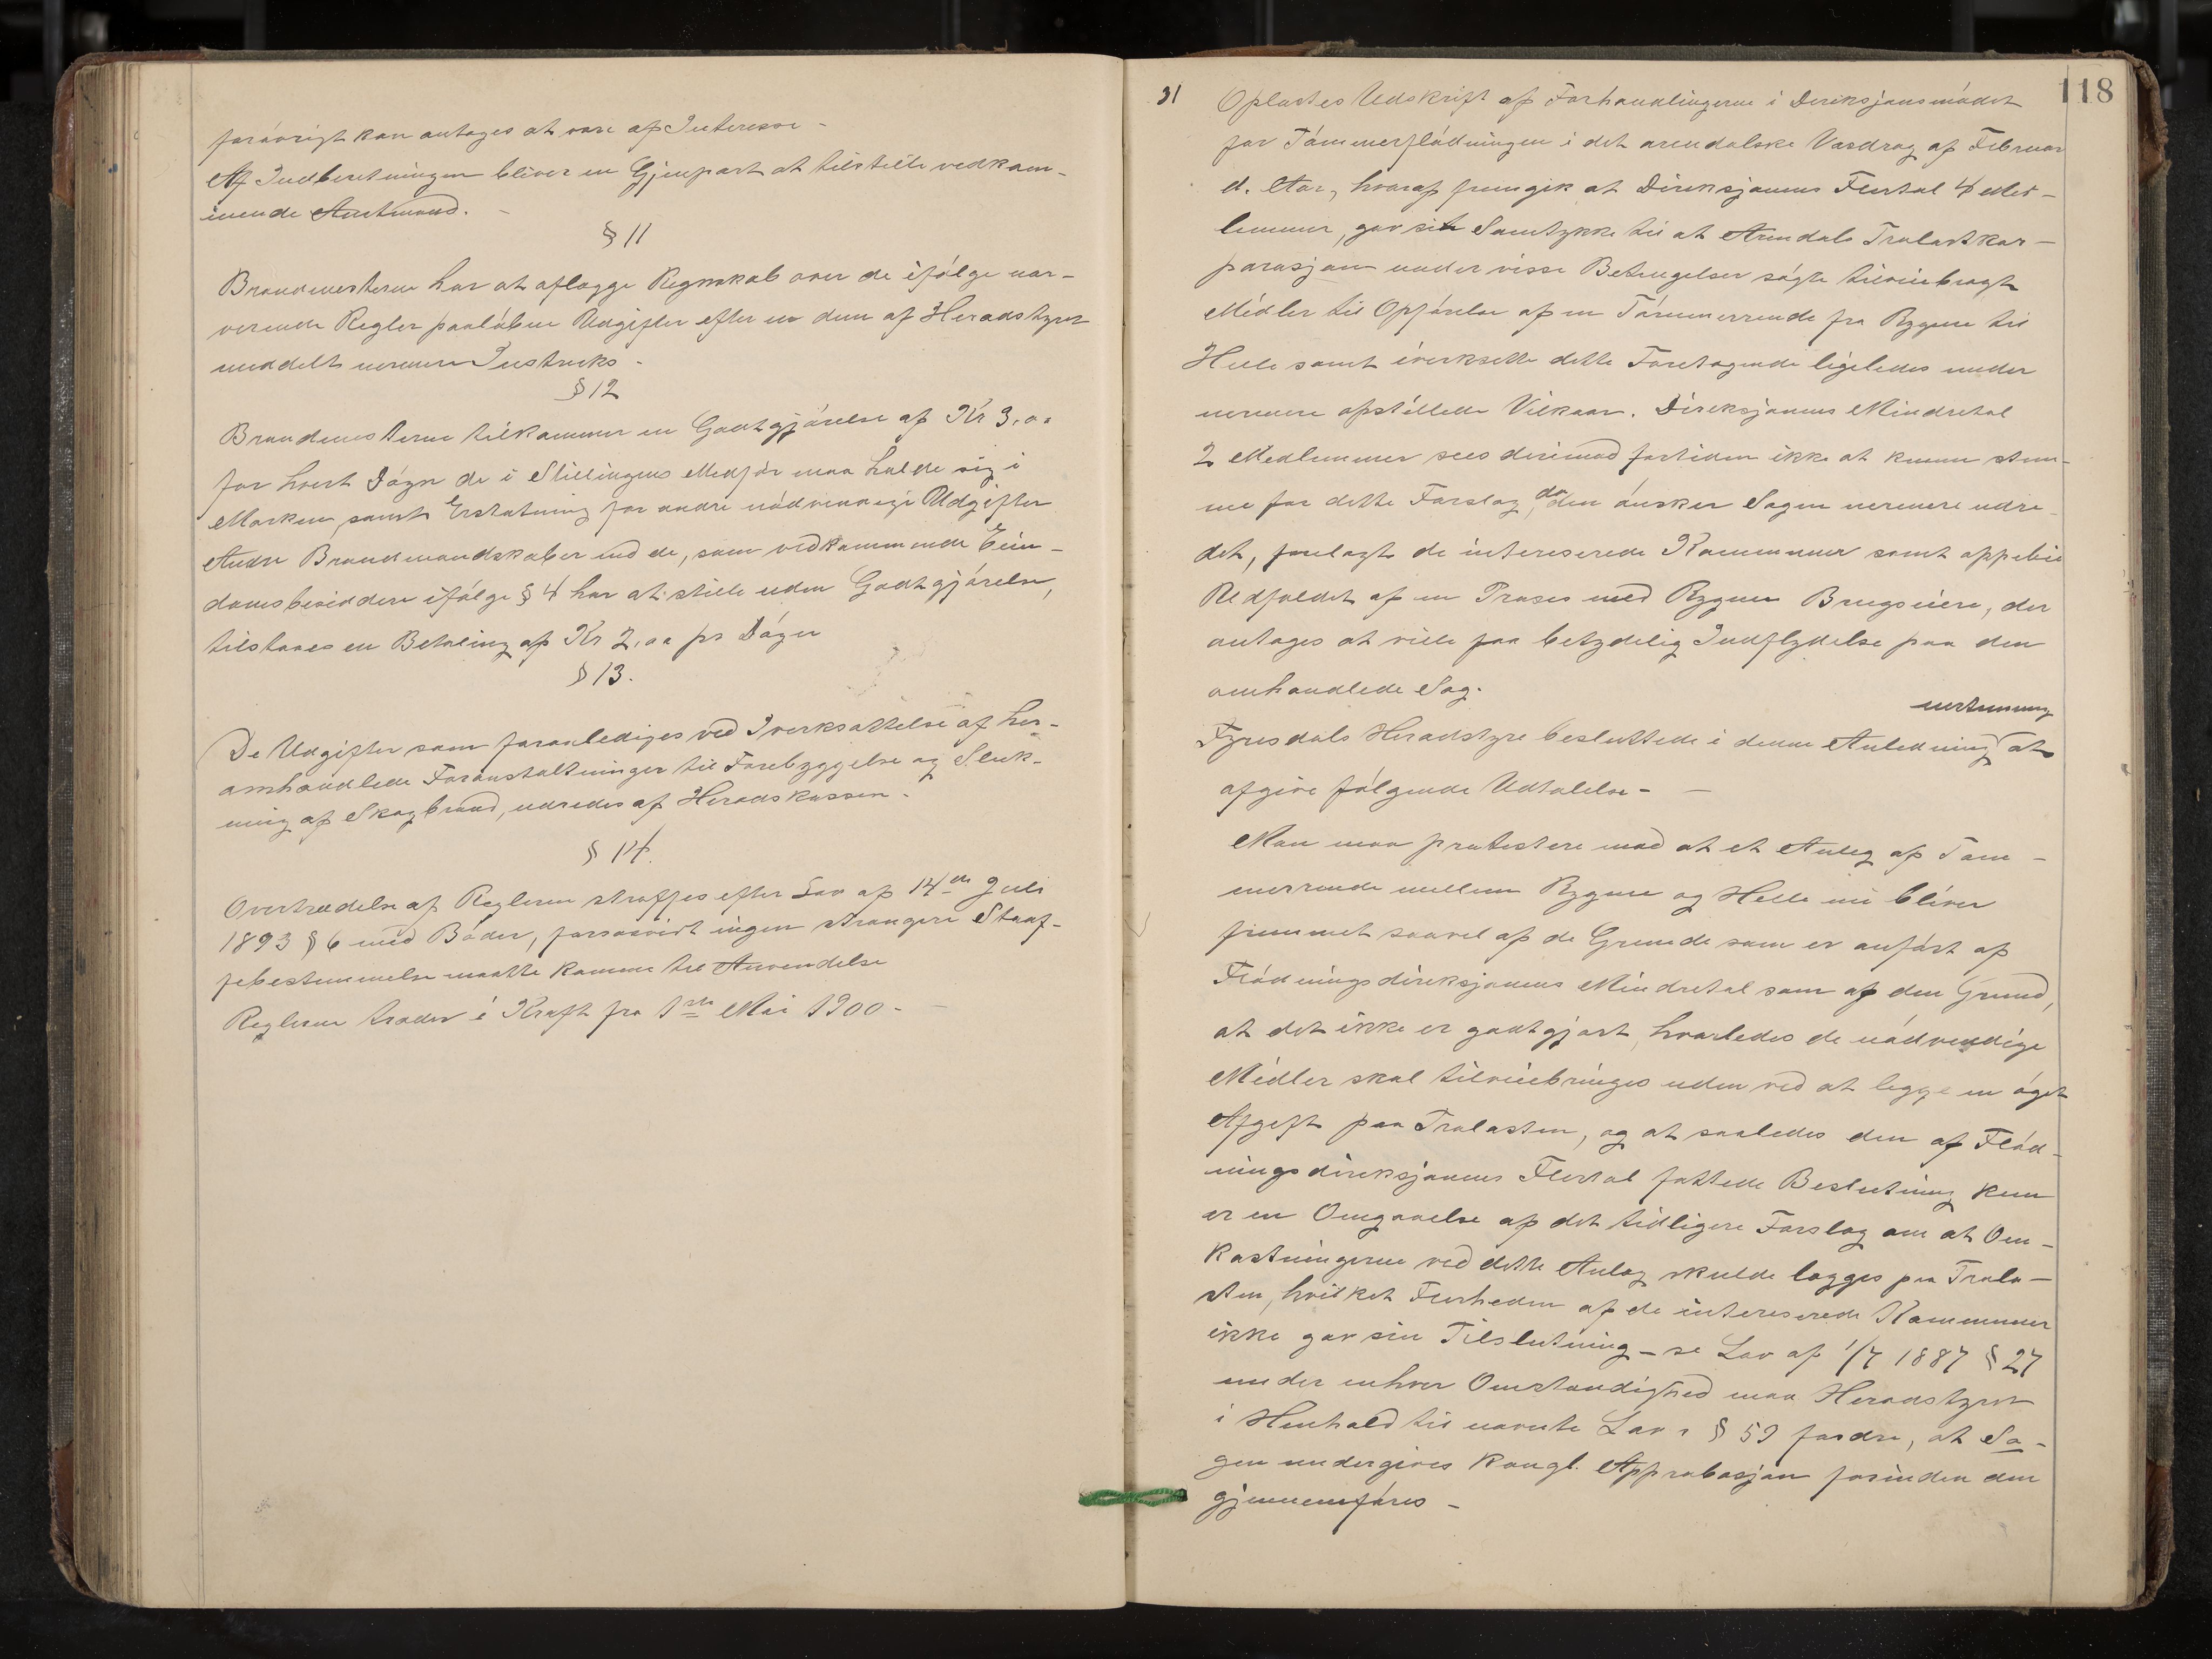 forövrigt kan antages at være af Interesse -
Af Indberetningen bliver en Gjenpart at tilstille vedkom-
mende Amtmand. -
§ 11
Brandmesterne har at aflægge Regnskab over de ifölge nær-
værende Regler paalöbne Udgifter efter en dem af Heradstyret
meddelt nærmere Instruks -
§ 12
Brandmesterne tilkommer en Godtgjörelse af Kr 3,00
for hvert Dögn de i Stillingens Medför maa holde sig i
Marken samt Erstatning for andre nödvendige Udgifter
Andre Brandmandskaber end de, som vedkommende Eien-
domsbesiddere ifölge § 4 har at stille uden Godtgjörelse,
tilstaaes en Betaling af Kr 2,00 pr Dögn
§ 13.
De Udgifter som foranlediges ved Iverksættelse af her-
omhandlede Foranstaltninger til Forebyggelse og Sluk-
ning af Skogbrand, udredes af Heradskassen -
§ 14.
Overtrædelse af Reglerne straffes efter Lov af 14de Juli
1893 § 6 med Böder, forsaavidt ingen strængere Straf-
febestemmelse maatte komme til Anvendelse
Reglerne træder i Kraft fra 1ste Mai 1900 -
118
31 Oplæstes Udskrift af Forhandlingerne i Direksjonsmödet
for Tömmerflödningen i det arendalske Vasdrag af Februar
d. Aar, hvoraf fremgik at Direksjonens Flertal 4 Med-
lemmer, gav sit Samtykke til at Arendals Trælastkor-
porasjon under visse Betingelser sögte tilveiebragt
Midler til Opförelse af en Tömmerrende fra Rygene til
Helle samt iverksætte dette Foretagende ligeledes under
nærmere opstillede Vilkaar. Direksjonens Mindretal
2 Medlemmer sees derimod fortiden ikke at kunne stem-
me for dette Forslag, da den önsker Sagen nærmere udre-
det, forelagt de interesserede Kommuner samt oppebie
Udfaldet af en Proses med Rygene Brugseiere, der
antages at ville faa betydelig Indflydelse paa den
omhandlede Sag.
enstemmig
Fyresdals Heradstyre besluttede i denne Anledning at
afgive fölgende Udtalelse - -
Man maa protestere mod at et Anlæg af Töm-
merrende mellem Rygene og Helle nu bliver
fremmet saavel af de Grunde som er anfört af
Flödningsdireksjonens Mindretal som af den Grund,
at det ikke er godtgjort, hvorledes de nödvendige
Midler skal tilveiebringes uden ved at lægge en öget
Afgift paa Trælasten, og at saaledes den af Flöd-
ningsdireksjonens Flertal fattede Beslutning kun
er en Omgaaelse af det tidligere Forslag om at Om-
kostningerne ved dette Anlæg skulde lægges paa Trælа-
sten, hvilket Flerheden af de interesserede Kommuner
ikke gav sin Tilslutning - se Lov af 1/7 1887 § 27
under enhver Omstændighed maa Heradstyret
i Henhold til nævnte Lovs § 59 fordre, at Sa-
gen undergives kongl. Approbasjon forinden den
gjennemföres -